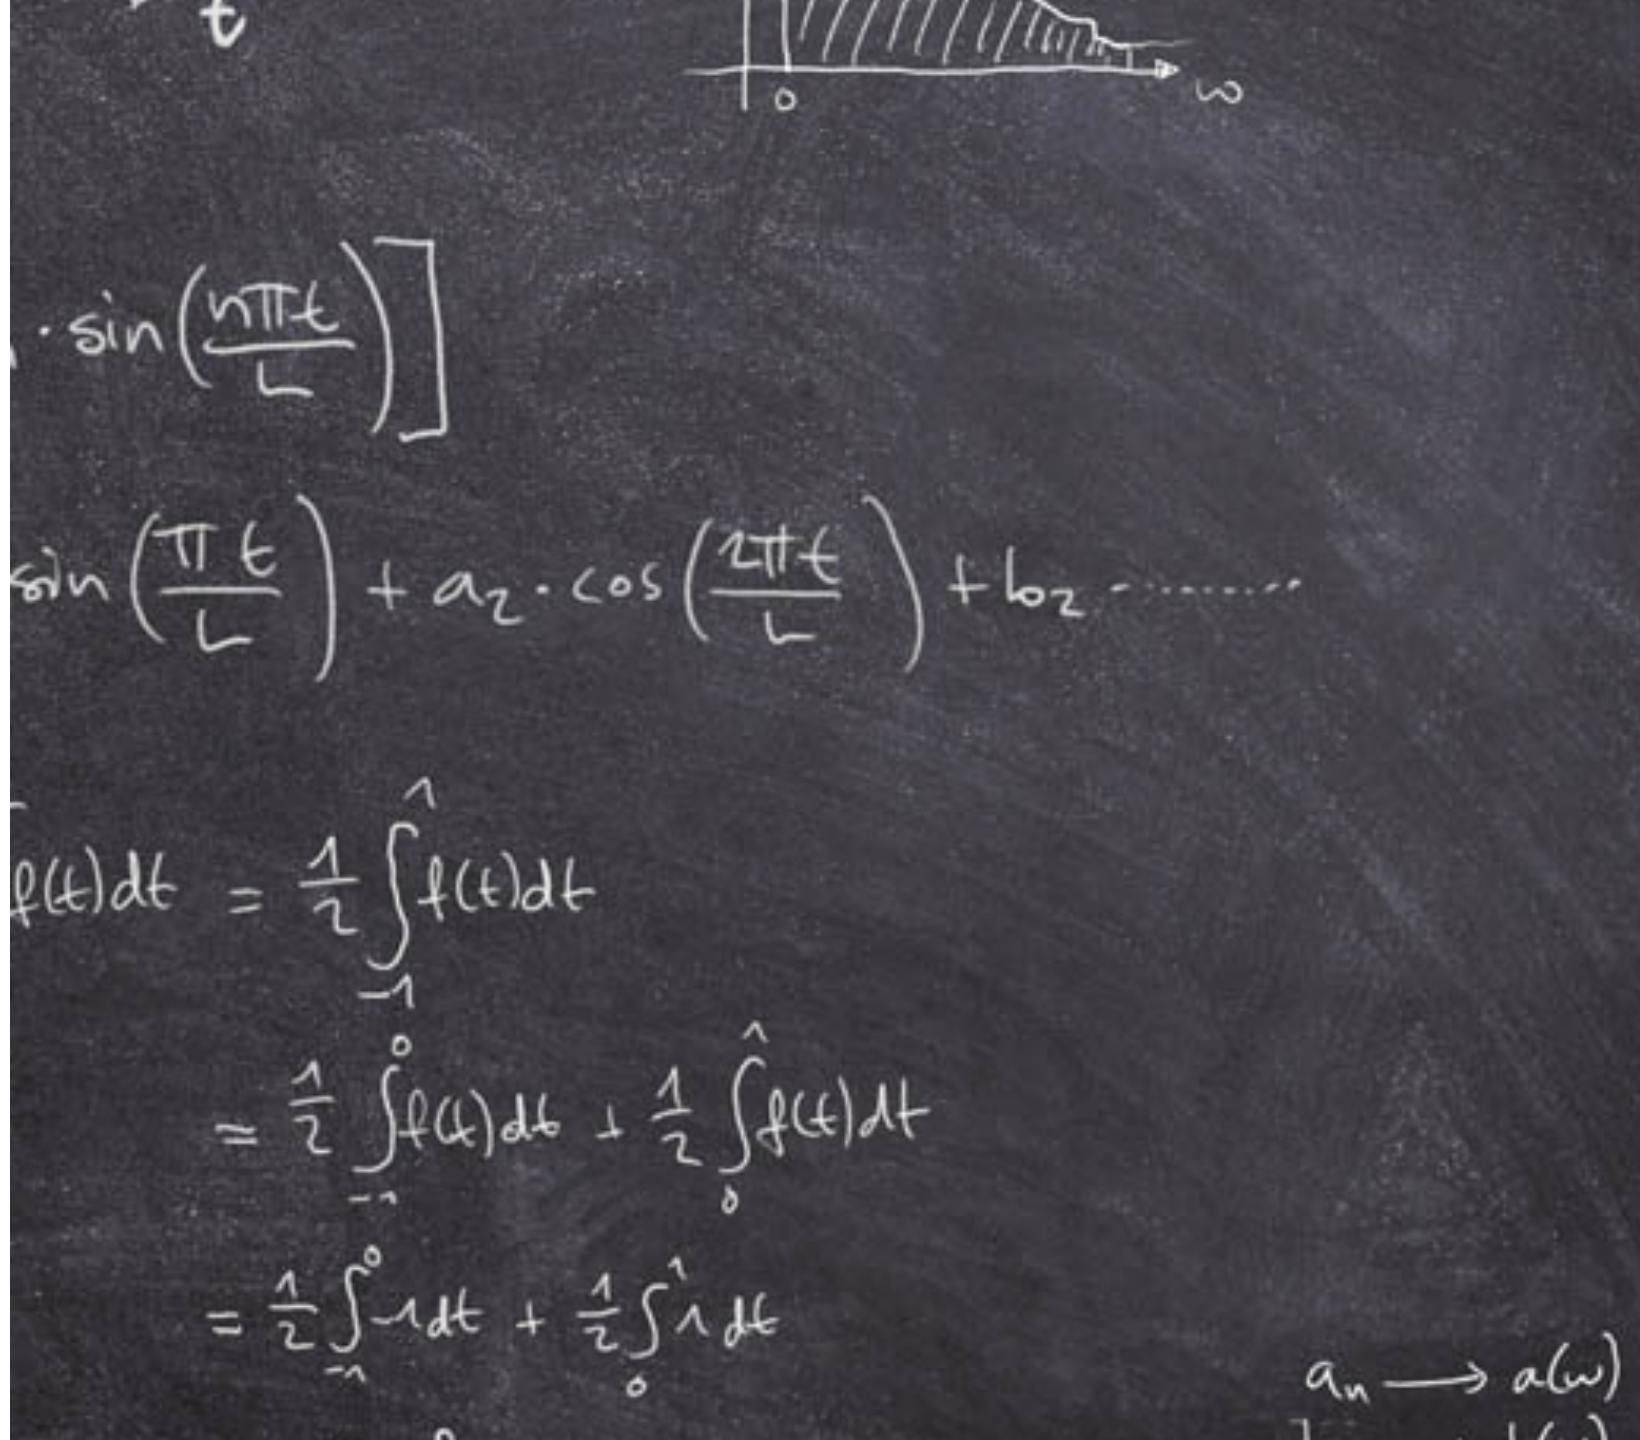 t
0 ω
· sin(nπt/L)]
sin(πt/L) + a₂ · cos(2πt/L) + b₂ ........
f(t)dt = 1/2 ∫₋₁¹ f(t)dt
= 1/2 ∫₋₁⁰ f(t)dt + 1/2 ∫₀¹ f(t)dt
= 1/2 ∫₋₁⁰ -1dt + 1/2 ∫₀¹ 1dt
aₙ → a(ω)